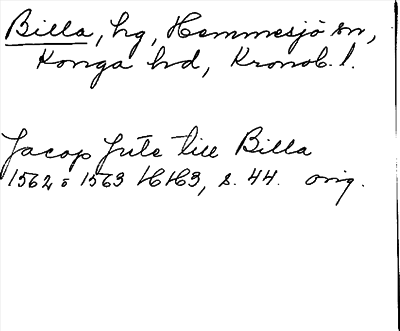 Billa, hg, Hemmesjö sn,
Konga hd, Kronob. l.
Jacop Jute till Billa
1562 o 1563 HH3, s. 44. orig.